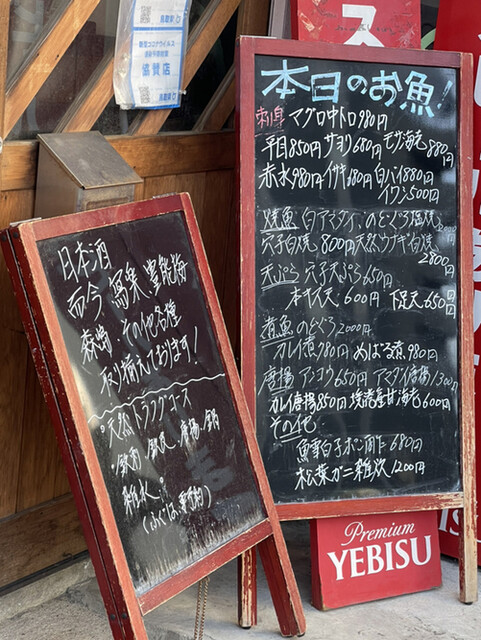 本日のお魚!
刺身 マグロ中トロ980円
平目850円 サヨリ680円 モサ海老880円
赤水980円 イサキ680円 白バイ880円
イワシ500円
焼魚 白アマダイ、のどぐろ塩焼
穴子白焼 800円 天然ウナギ白焼
2800円
天ぷら 穴子天ぷら650円
キス天 600円 下足天650円
煮魚 のどぐろ2000円
カレイ煮980円 めばる煮980円
唐揚 アンコウ650円 アマダイ唐揚1300円
カレイ唐揚850円 甘海老600円
その他
鱈白子ポン酢 680円
松葉ガニ雑炊 1200円
日本酒
而今、鳳凰 豊能梅
森嶋、その他各種
取り揃えております!
・天然トラフグコース
・鉄刺、鉄皮、唐揚、鍋
雑炊。
(ふぐは要予約)
Premium
YEBISU
新型コロナウイルス
協賛店
ス